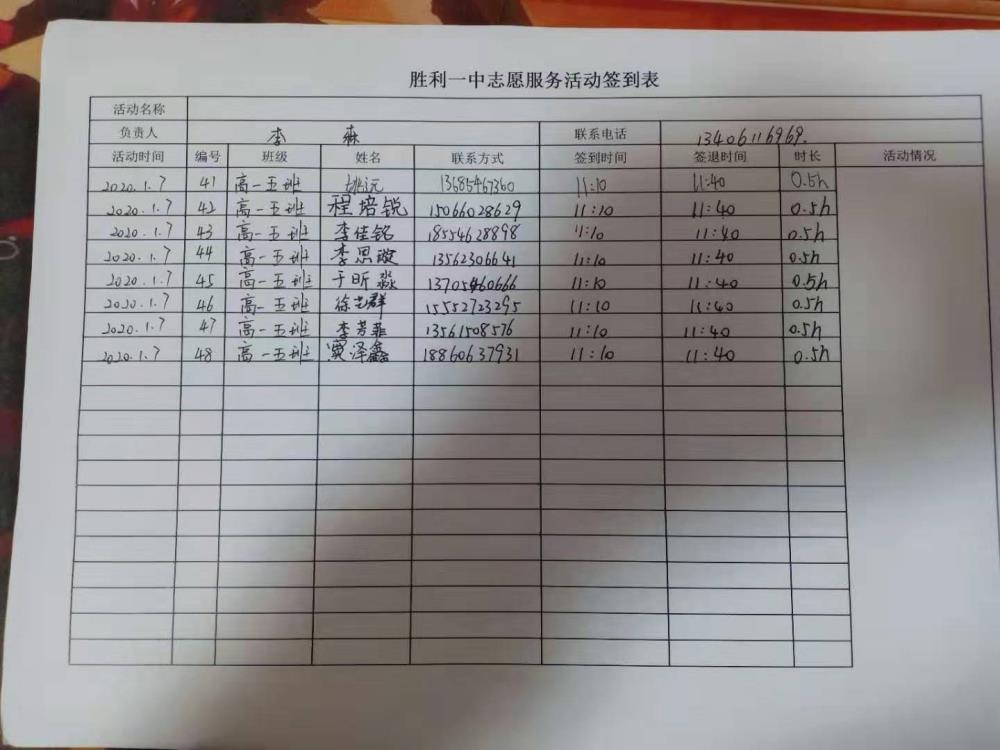 胜利一中志愿服务活动签到表
活动名称
负责人 李 森 联系电话 13406116969.
活动时间 编号 班级 姓名 联系方式 签到时间 签退时间 时长 活动情况
2020.1.7 41 高一五班 姚远 13685467360 11:10 11:40 0.5h
2020.1.7 42 高一五班 程培锐 15066028629 11:10 11:40 0.5h
2020.1.7 43 高一五班 李佳铭 18554628898 11:10 11:40 0.5h
2020.1.7 44 高一五班 李思璇 13562306641 11:10 11:40 0.5h
2020.1.7 45 高一五班 于昕淼 13705460666 11:10 11:40 0.5h
2020.1.7 46 高一五班 徐艺群 15552723295 11:10 11:40 0.5h
2020.1.7 47 高一五班 李芳菲 13561508576 11:10 11:40 0.5h
2020.1.7 48 高一五班 泽鑫 18860637931 11:10 11:40 0.5h